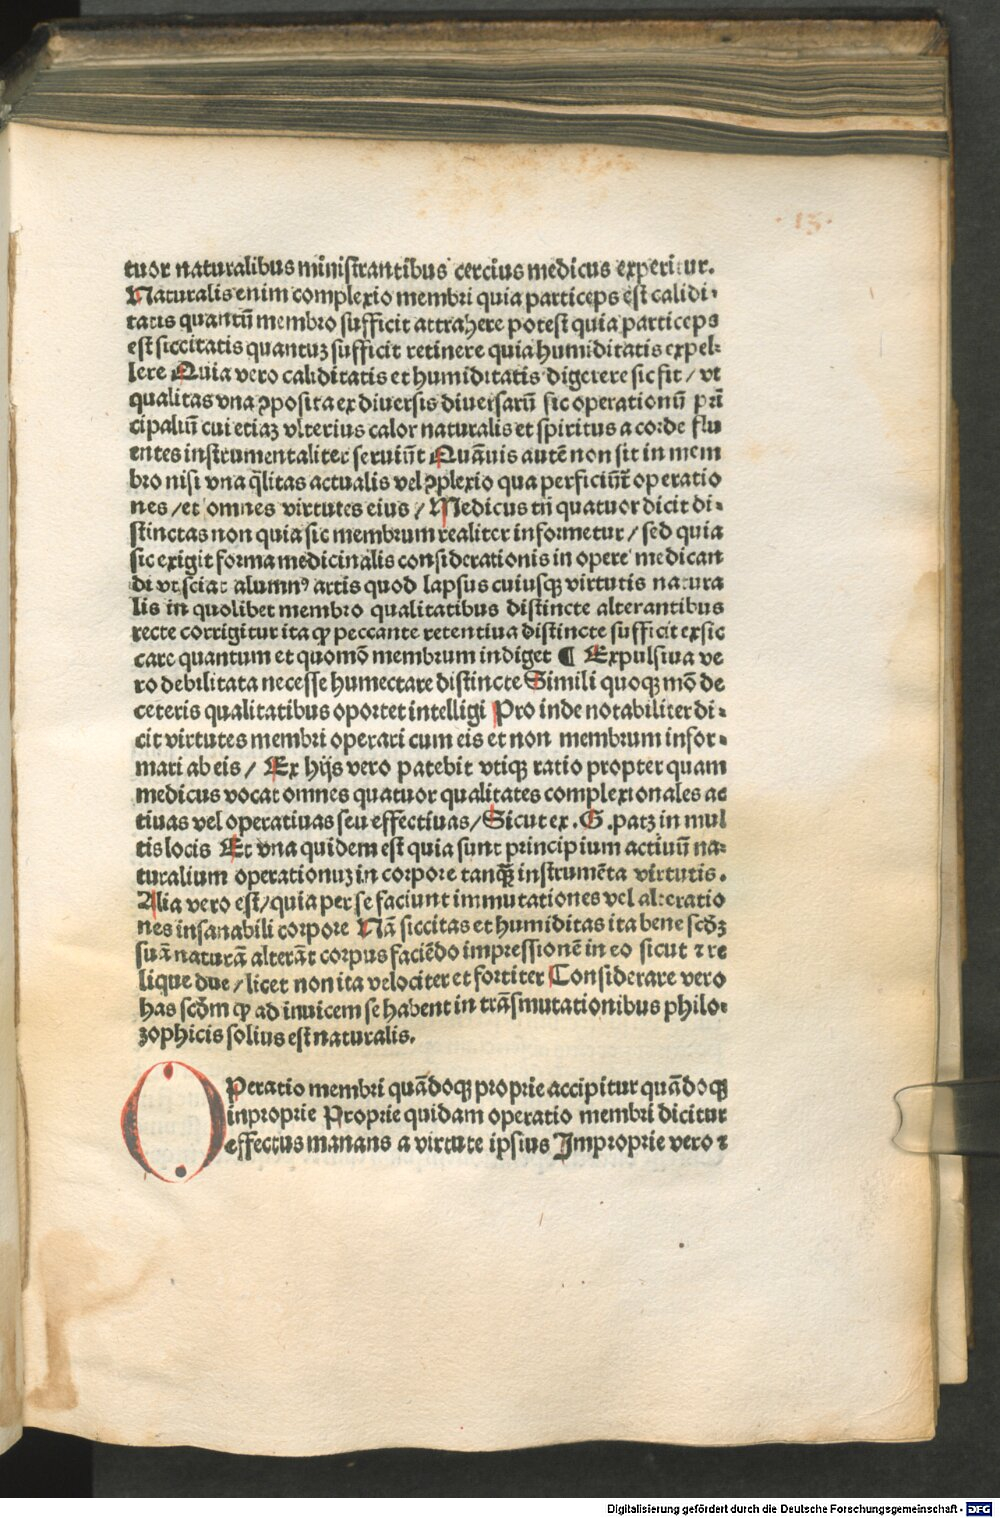 .13.
tuor naturalibus ministrantibus cercius medicus experitur.
Naturalis enim complexio membri quia particeps est calidi⸗
tatis quantū membro sufficit attrahere potest quia particeps
est siccitatis quantuꝫ sufficit retinere quia humiditatis expel⸗
lere Quia vero caliditatis et humiditatis digerere sic fit / vt
qualitas vna ꝯposita ex diuersis diuersarū sic operationū prī
cipaliū cui etiaꝫ vlterius calor naturalis et spiritus a corde flu
entes instrumentaliter seruiūt Quāuis autē non sit in mem
bro nisi vna q̄litas actualis vel ꝯplexio qua perficiūt̄ operatio
nes / et omnes virtutes eius / Medicus tn̄ quatuor dicit di⸗
stinctas non quia sic membrum realiter informetur / sed quia
sic exigit forma medicinalis considerationis in opere medican
di vt sciat alumnꝰ artis quod lapsus cuiusqꝫ virtutis natura
lis in quolibet membro qualitatibus distincte alterantibus
recte corrigitur ita ꝙ peccante retentiua distincte sufficit exsic
care quantum et quomō membrum indiget ¶ Expulsiua ve
ro debilitata necesse humectare distincte Simili quoqꝫ mō de
ceteris qualitatibus oportet intelligi Pro inde notabiliter di⸗
cit virtutes membri operari cum eis et non membrum infor⸗
mari ab eis / Ex hijs vero patebit vtiqꝫ ratio propter quam
medicus vocat omnes quatuor qualitates complexionales ac
tiuas vel operatiuas seu effectiuas / Sicut ex .G. patꝫ in mul
tis locis Et vna quidem est quia sunt principium actiuū na⸗
turalium operationuꝫ in corpore tanqꝫ̄ instrumēta virtutis.
Alia vero est / quia per se faciunt immutationes vel alteratio
nes in sanabili corpore Nā siccitas et humiditas ita bene scd̄ꝫ
suā naturā alterāt corpus faciēdo impressionē in eo sicut ⁊ re
lique due / licet non ita velociter et fortiter Considerare vero
has scd̄m ꝙ ad inuicem se habent in trāsmutationibus philo⸗
zophicis solius est naturalis.
OPeratio membri quādoqꝫ proprie accipitur quādoqꝫ
inproprie Proprie quidam operatio membri dicitur
effectus manans a virtute ipsius Jmproprie vero ⁊
Digitalisierung gefördert durch die Deutsche Forschungsgemeinschaft - DFG